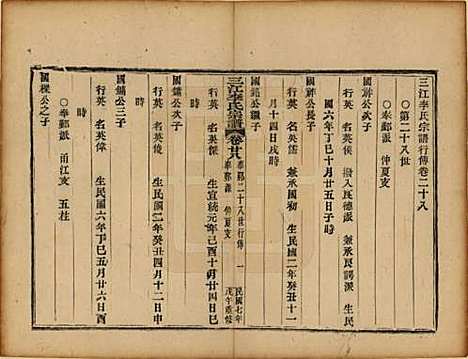 三江李氏宗譜行傳卷二十八
○第二十八世
○奉鄞派 仲夏支
國孵公長子
行英 名英侯 撥入良德派 兼承國謁派 生民
國六年丁巳十月廿五日子時
國孵公次子
行英 名英儒 兼承國勒 生民國二年癸丑十一
月十四日戌時
三江李氏宗譜 卷廿八 奉鄞二十八世行傳 一
奉鄞派 仲夏支
民國七年
戊午重修
國鏞公次子
行英 名英俊 生宣統元年己酉十月廿五日辰
時
國鏞公三子
行英 名英俊 生民國二年癸丑四月十二日申
時
行英 名英偉 生民國六年丁巳五月廿六日酉
時
○奉鄞派 甬江支 五柱
國樑公之子